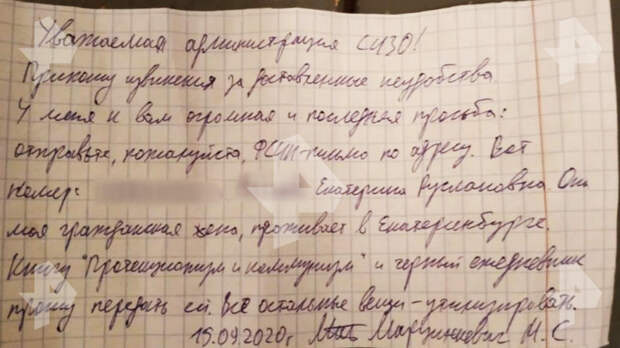 Уважаемая администрация СИЗО!
Приношу извинения за доставленные неудобства
У меня к вам огромная и последняя просьба:
отправьте, пожалуйста, ФСИН-письмо по адресу. Вот
номер: Екатерина Руслановна Она
моя гражданская жена, проживает в Екатеринбурге.
Книгу "Протекционизм и коммунизм" и черный ежедневник
прошу передать ей. Все остальные вещи - утилизировать.
15.09.2020г Марцинкевич М. С.